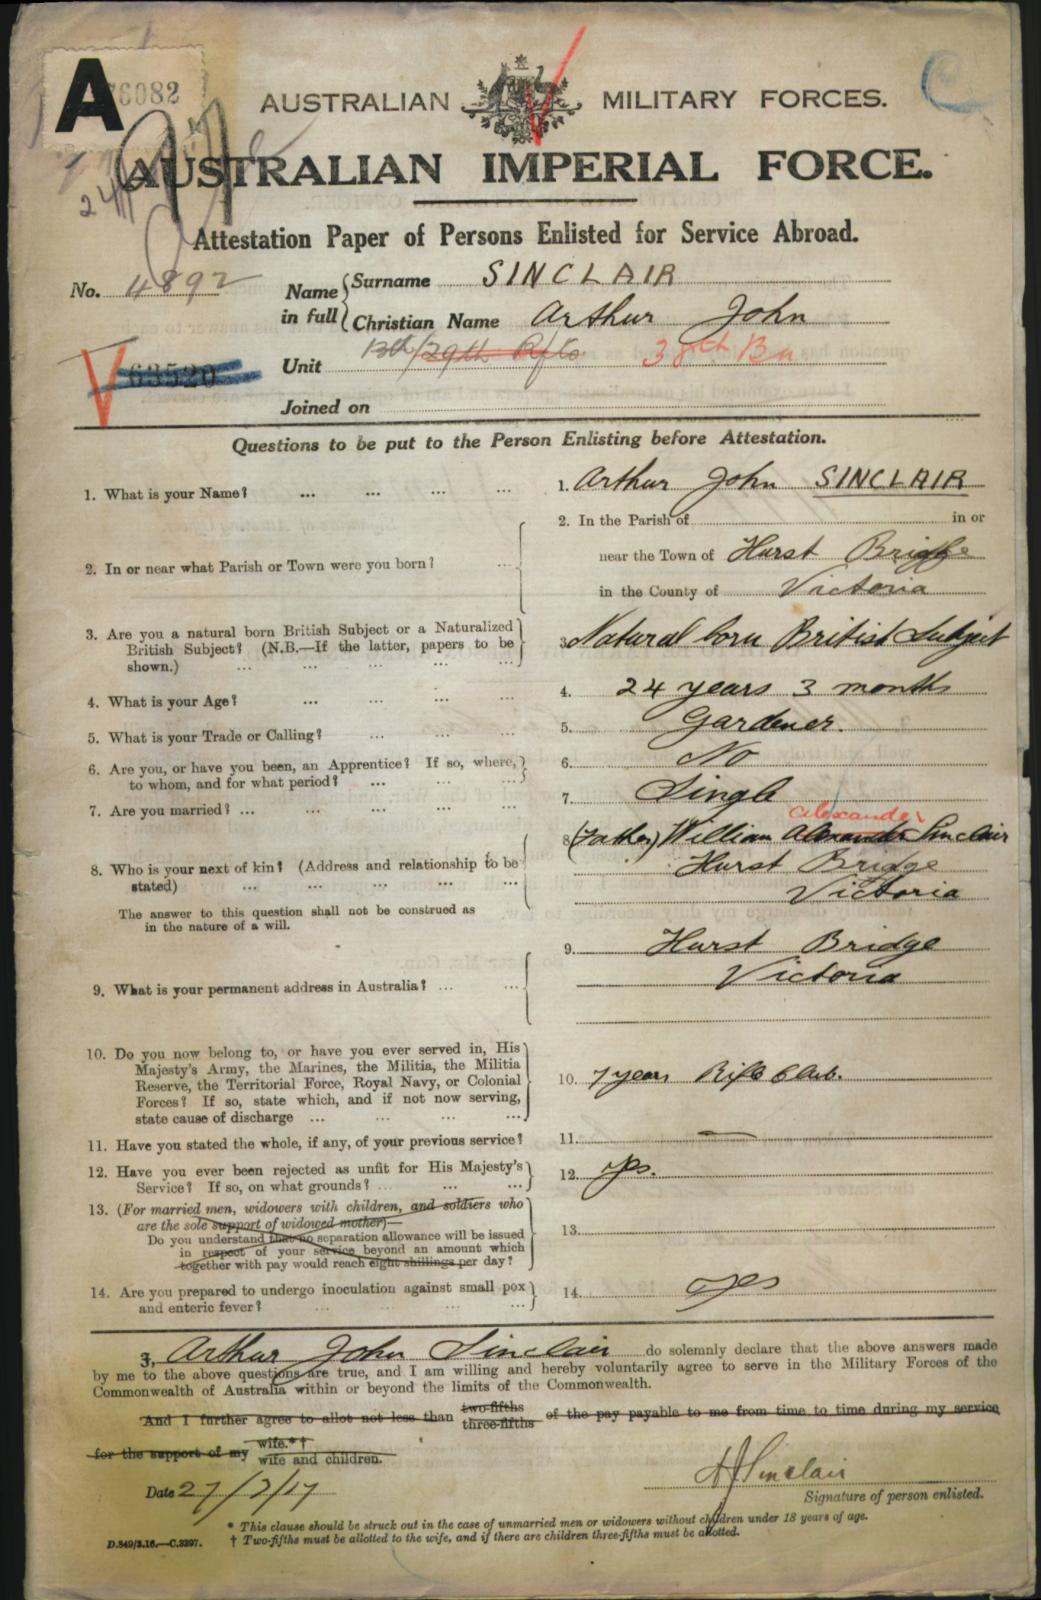 A 76082
AUSTRALIAN MILITARY FORCES.
AUSTRALIAN IMPERIAL FORCE.
Attestation Paper of Persons Enlisted for Service Abroad.
No. 4892
Name in full { Surname SINCLAIR
Christian Name Arthur John
Unit 13th/29th Rfts 38th Bn
63520
Joined on
Questions to be put to the Person Enlisting before Attestation.
1. What is your Name? ... ... ... ... 1. Arthur John SINCLAIR
2. In or near what Parish or Town were you born? ... 2. In the Parish of in or
near the Town of Hurst Bridge
in the County of Victoria
3. Are you a natural born British Subject or a Naturalized
British Subject? (N.B.—If the latter, papers to be
shown.) ... ... ... ... 3. Natural born British Subject
4. What is your Age? ... ... ... 4. 24 years 3 months
5. What is your Trade or Calling? ... ... ... 5. Gardener.
6. Are you, or have you been, an Apprentice? If so, where,
to whom, and for what period? ... ... ... 6. No
7. Are you married? ... ... ... ... 7. Single
Alexander
8. Who is your next of kin? (Address and relationship to be
stated) ... ... ... ... ... 8. (Father) William Alexander Sinclair
Hurst Bridge
Victoria
The answer to this question shall not be construed as
in the nature of a will.
9. What is your permanent address in Australia? ... ... 9. Hurst Bridge
Victoria
10. Do you now belong to, or have you ever served in, His
Majesty's Army, the Marines, the Militia, the Militia
Reserve, the Territorial Force, Royal Navy, or Colonial
Forces? If so, state which, and if not now serving,
state cause of discharge ... ... ... ... 10. 7 years Rifle Club.
11. Have you stated the whole, if any, of your previous service? 11. —
12. Have you ever been rejected as unfit for His Majesty's
Service? If so, on what grounds? ... ... ... 12. Yes.
13. (For married men, widowers with children, and soldiers who
are the sole support of widowed mother)—
Do you understand that no separation allowance will be issued
in respect of your service beyond an amount which
together with pay would reach eight shillings per day? 13.
14. Are you prepared to undergo inoculation against small pox
and enteric fever? ... ... ... ... 14. Yes
I, Arthur John Sinclair do solemnly declare that the above answers made
by me to the above questions are true, and I am willing and hereby voluntarily agree to serve in the Military Forces of the
Commonwealth of Australia within or beyond the limits of the Commonwealth.
And I further agree to allot not less than two-fifths three-fifths of the pay payable to me from time to time during my service
for the support of my wife.*† wife and children.
Date 27/2/17 AJSinclair
Signature of person enlisted.
* This clause should be struck out in the case of unmarried men or widowers without children under 18 years of age.
D.849/2.16.—C.2397. † Two-fifths must be allotted to the wife, and if there are children three-fifths must be allotted.